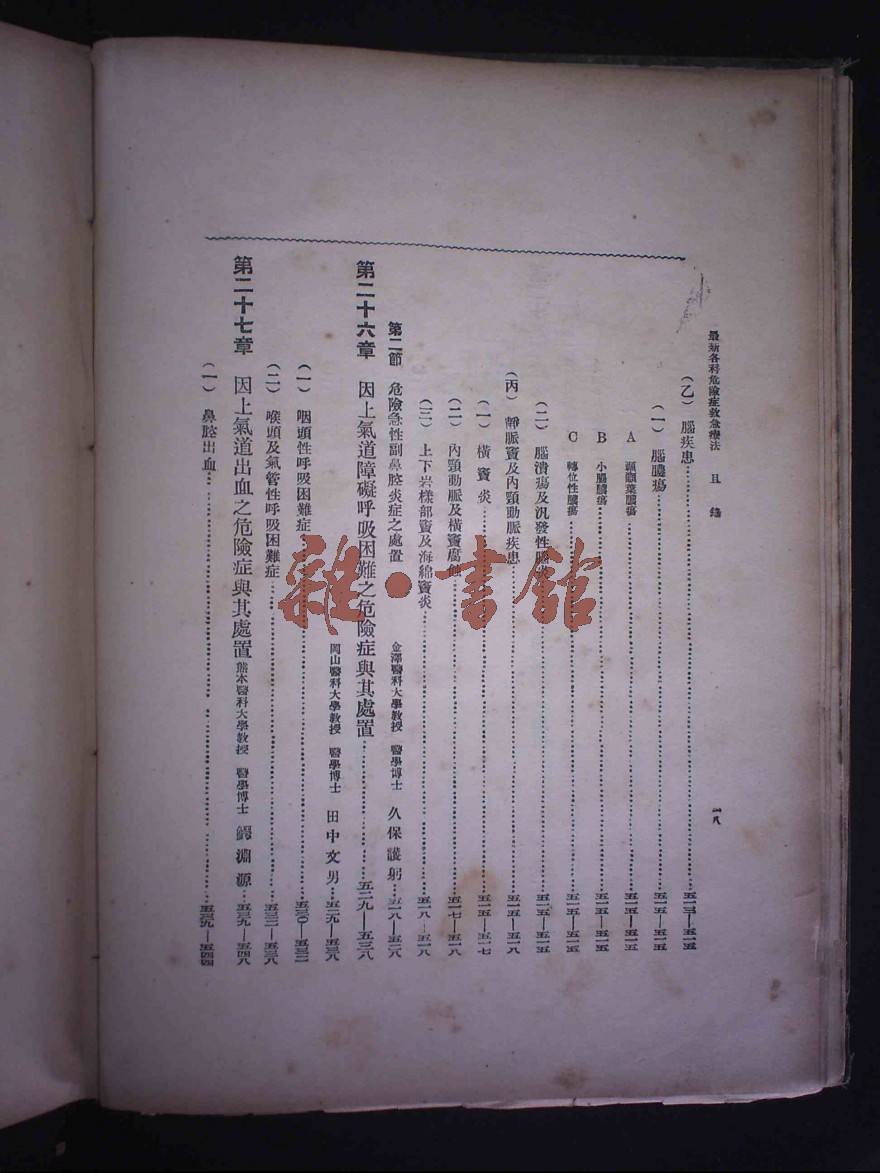 最新各科危險症救急療法　目錄
一八
(乙) 腦疾患……五一三—五一五
(一) 腦膿瘍……五一五—五一五
A 顳顬葉膿瘍……五一五—五一五
B 小腦膿瘍……五一五—五一五
C 轉位性膿瘍……五一五—五一五
(二) 腦潰瘍及汎發性腦炎……五一五—五一五
(丙) 靜脈竇及內頸動脈疾患……五一五—五一八
(一) 橫竇炎……五一五—五一七
(二) 內頸動脈及橫竇腐蝕……五一七—五一八
(三) 上下岩樣部竇及海綿竇炎……五一八—五一八
第二節 危險急性副鼻腔炎症之處置 金澤醫科大學教授 醫學博士 久保護躬…五一八—五二八
第二十六章 因上氣道障礙呼吸困難之危險症與其處置……五二九—五三八
岡山醫科大學教授 醫學博士 田中文男…五二九—五三八
(一) 咽頭性呼吸困難症……五三〇—五三二
(二) 喉頭及氣管性呼吸困難症……五三二—五三八
第二十七章 因上氣道出血之危險症與其處置 熊本醫科大學教授 醫學博士 鰐淵源…五三九—五四八
(一) 鼻腔出血……五三九—五四四
雜·書館